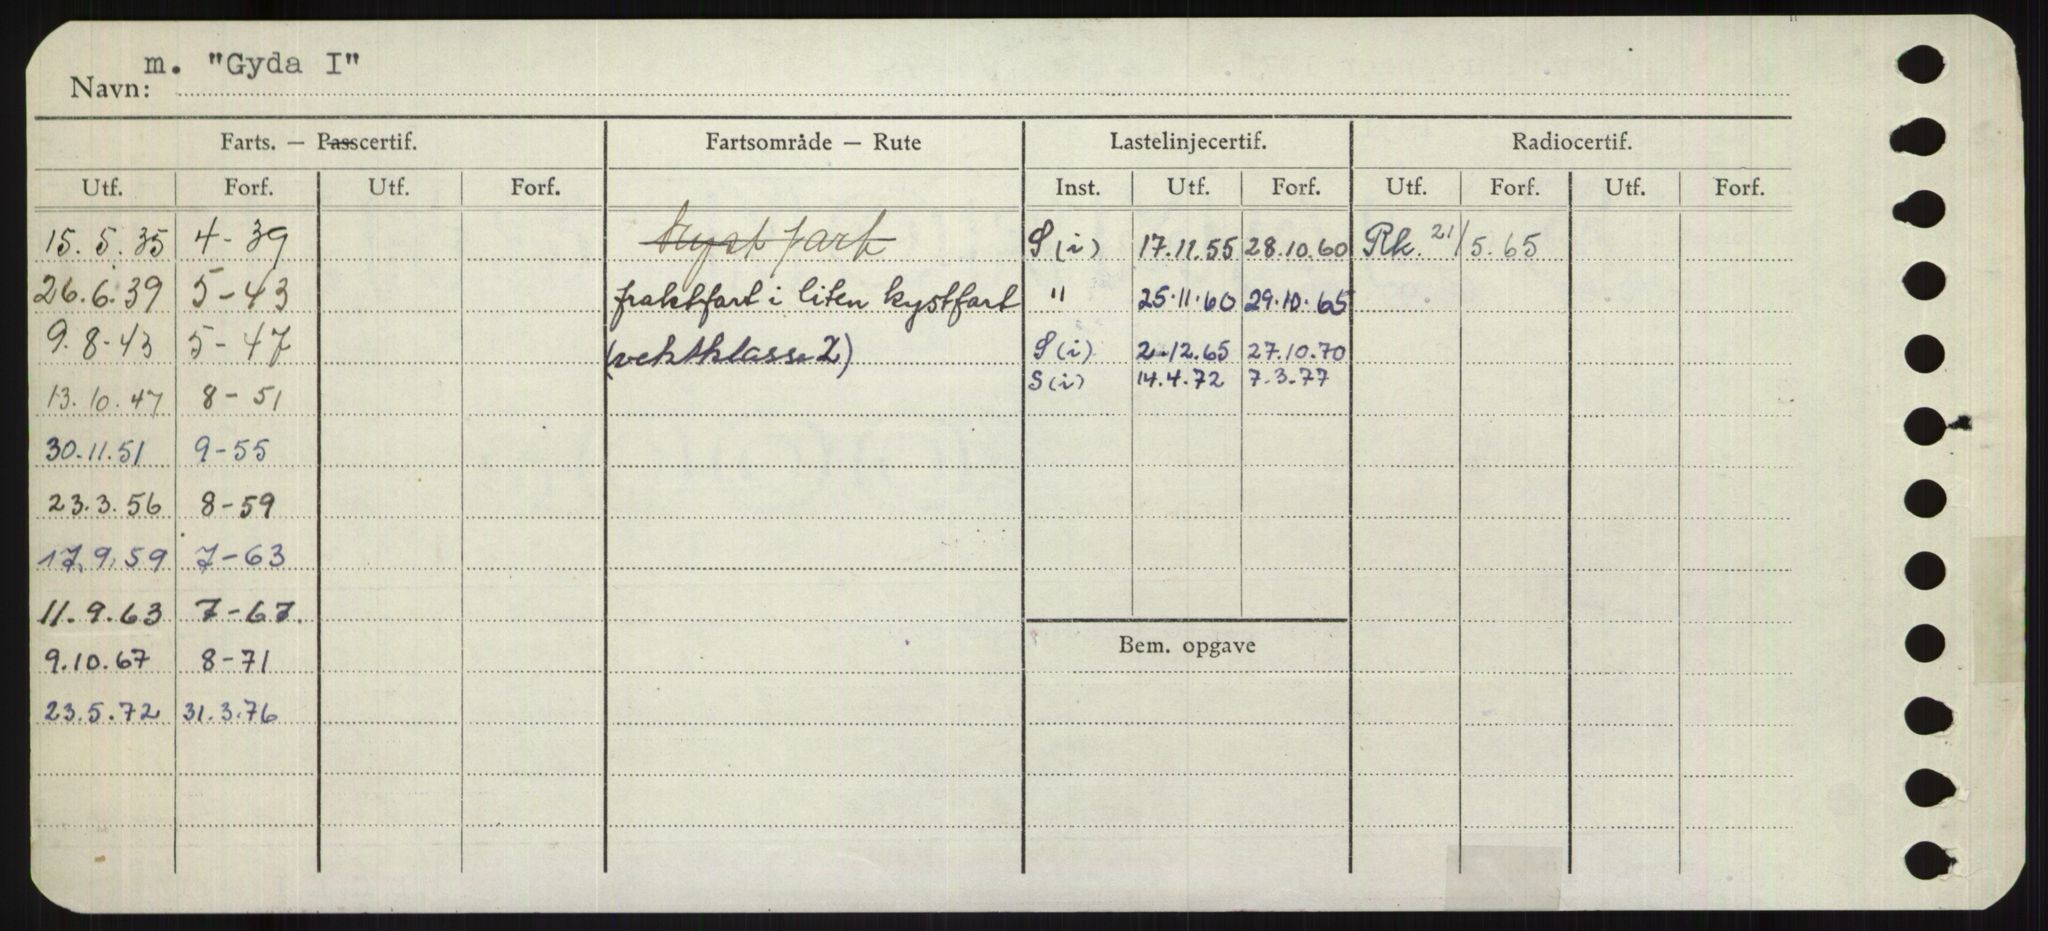 m. "Gyda I"
Navn:
Farts. — Passcertif. Fartsområde — Rute Lastelinjecertif. Radiocertif.
Utf. Forf. Utf. Forf. Inst. Utf. Forf. Utf. Forf. Utf. Forf.
15.5.35 4-39 Kystfart S(i) 17.11.55 28.10.60 Rk. 21/5.65
26.6.39 5-43 fraktfart i liten kystfart " 25.11.60 29.10.65
9.8-43 5-47 (vektklasse 2) S(i) 2-12.65 27.10.70
S(i) 14.4.72 7.3.77
13.10.47 8-51
30.11.51 9-55
23.3.56 8-59
17.9.59 7-63
11.9.63 7-67.
Bem. opgave
9.10.67 8-71
23.5.72 31.3.76